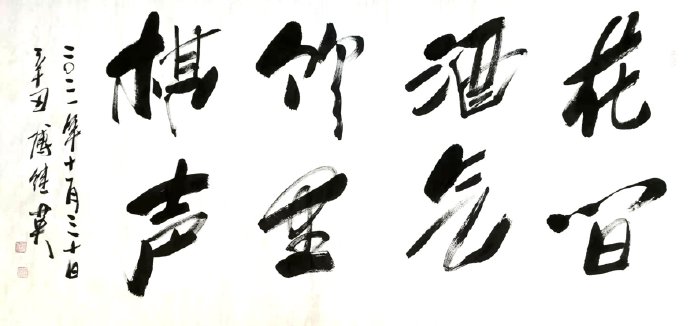 花间
酒气
竹里
棋声
二〇二一年十月三十日
辛丑 继英